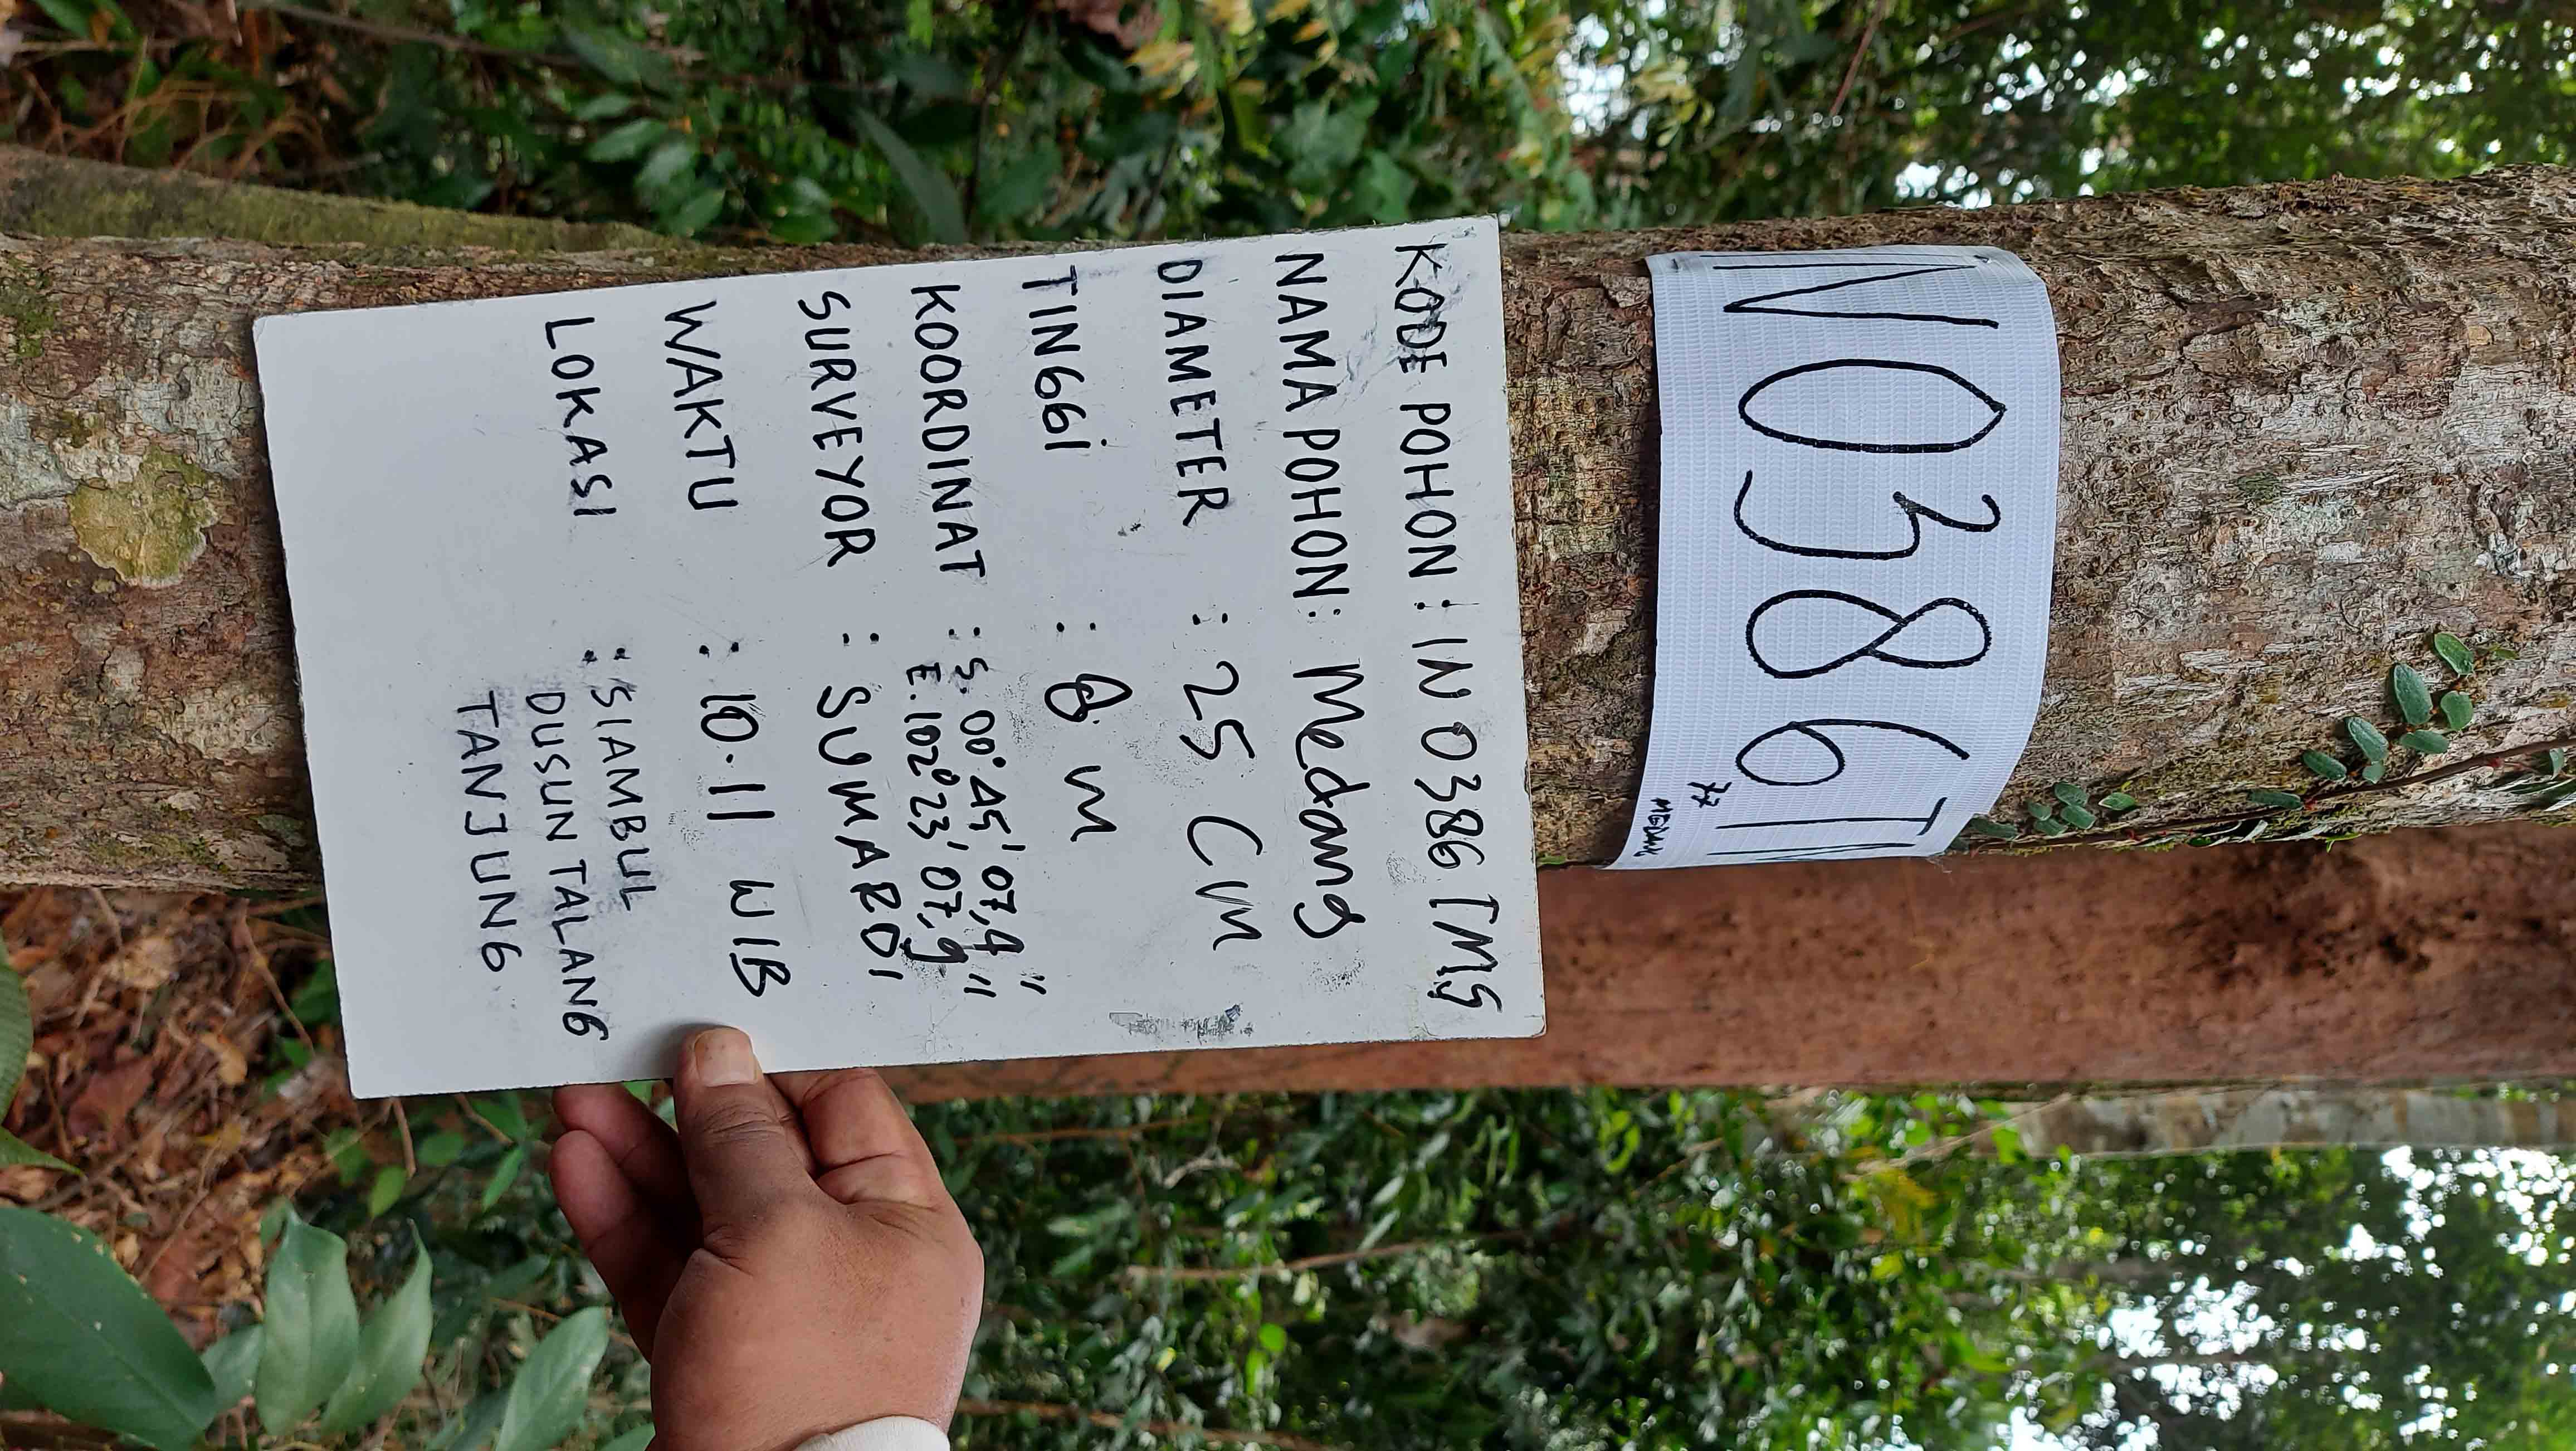 N0386TM
77
MEDANG
KODE POHON : IN 0386 TMG
NAMA POHON : Medang
DIAMETER : 25 Cm
TINGGi : 8 m
KOORDINAT : S. 00° 45' 07,4"
E. 102° 23' 07,9"
SURVEYOR : SUMARDI
WAKTU : 10.11 WIB
LOKASI : SIAMBUL
DUSUN TALANG
TANJUNG